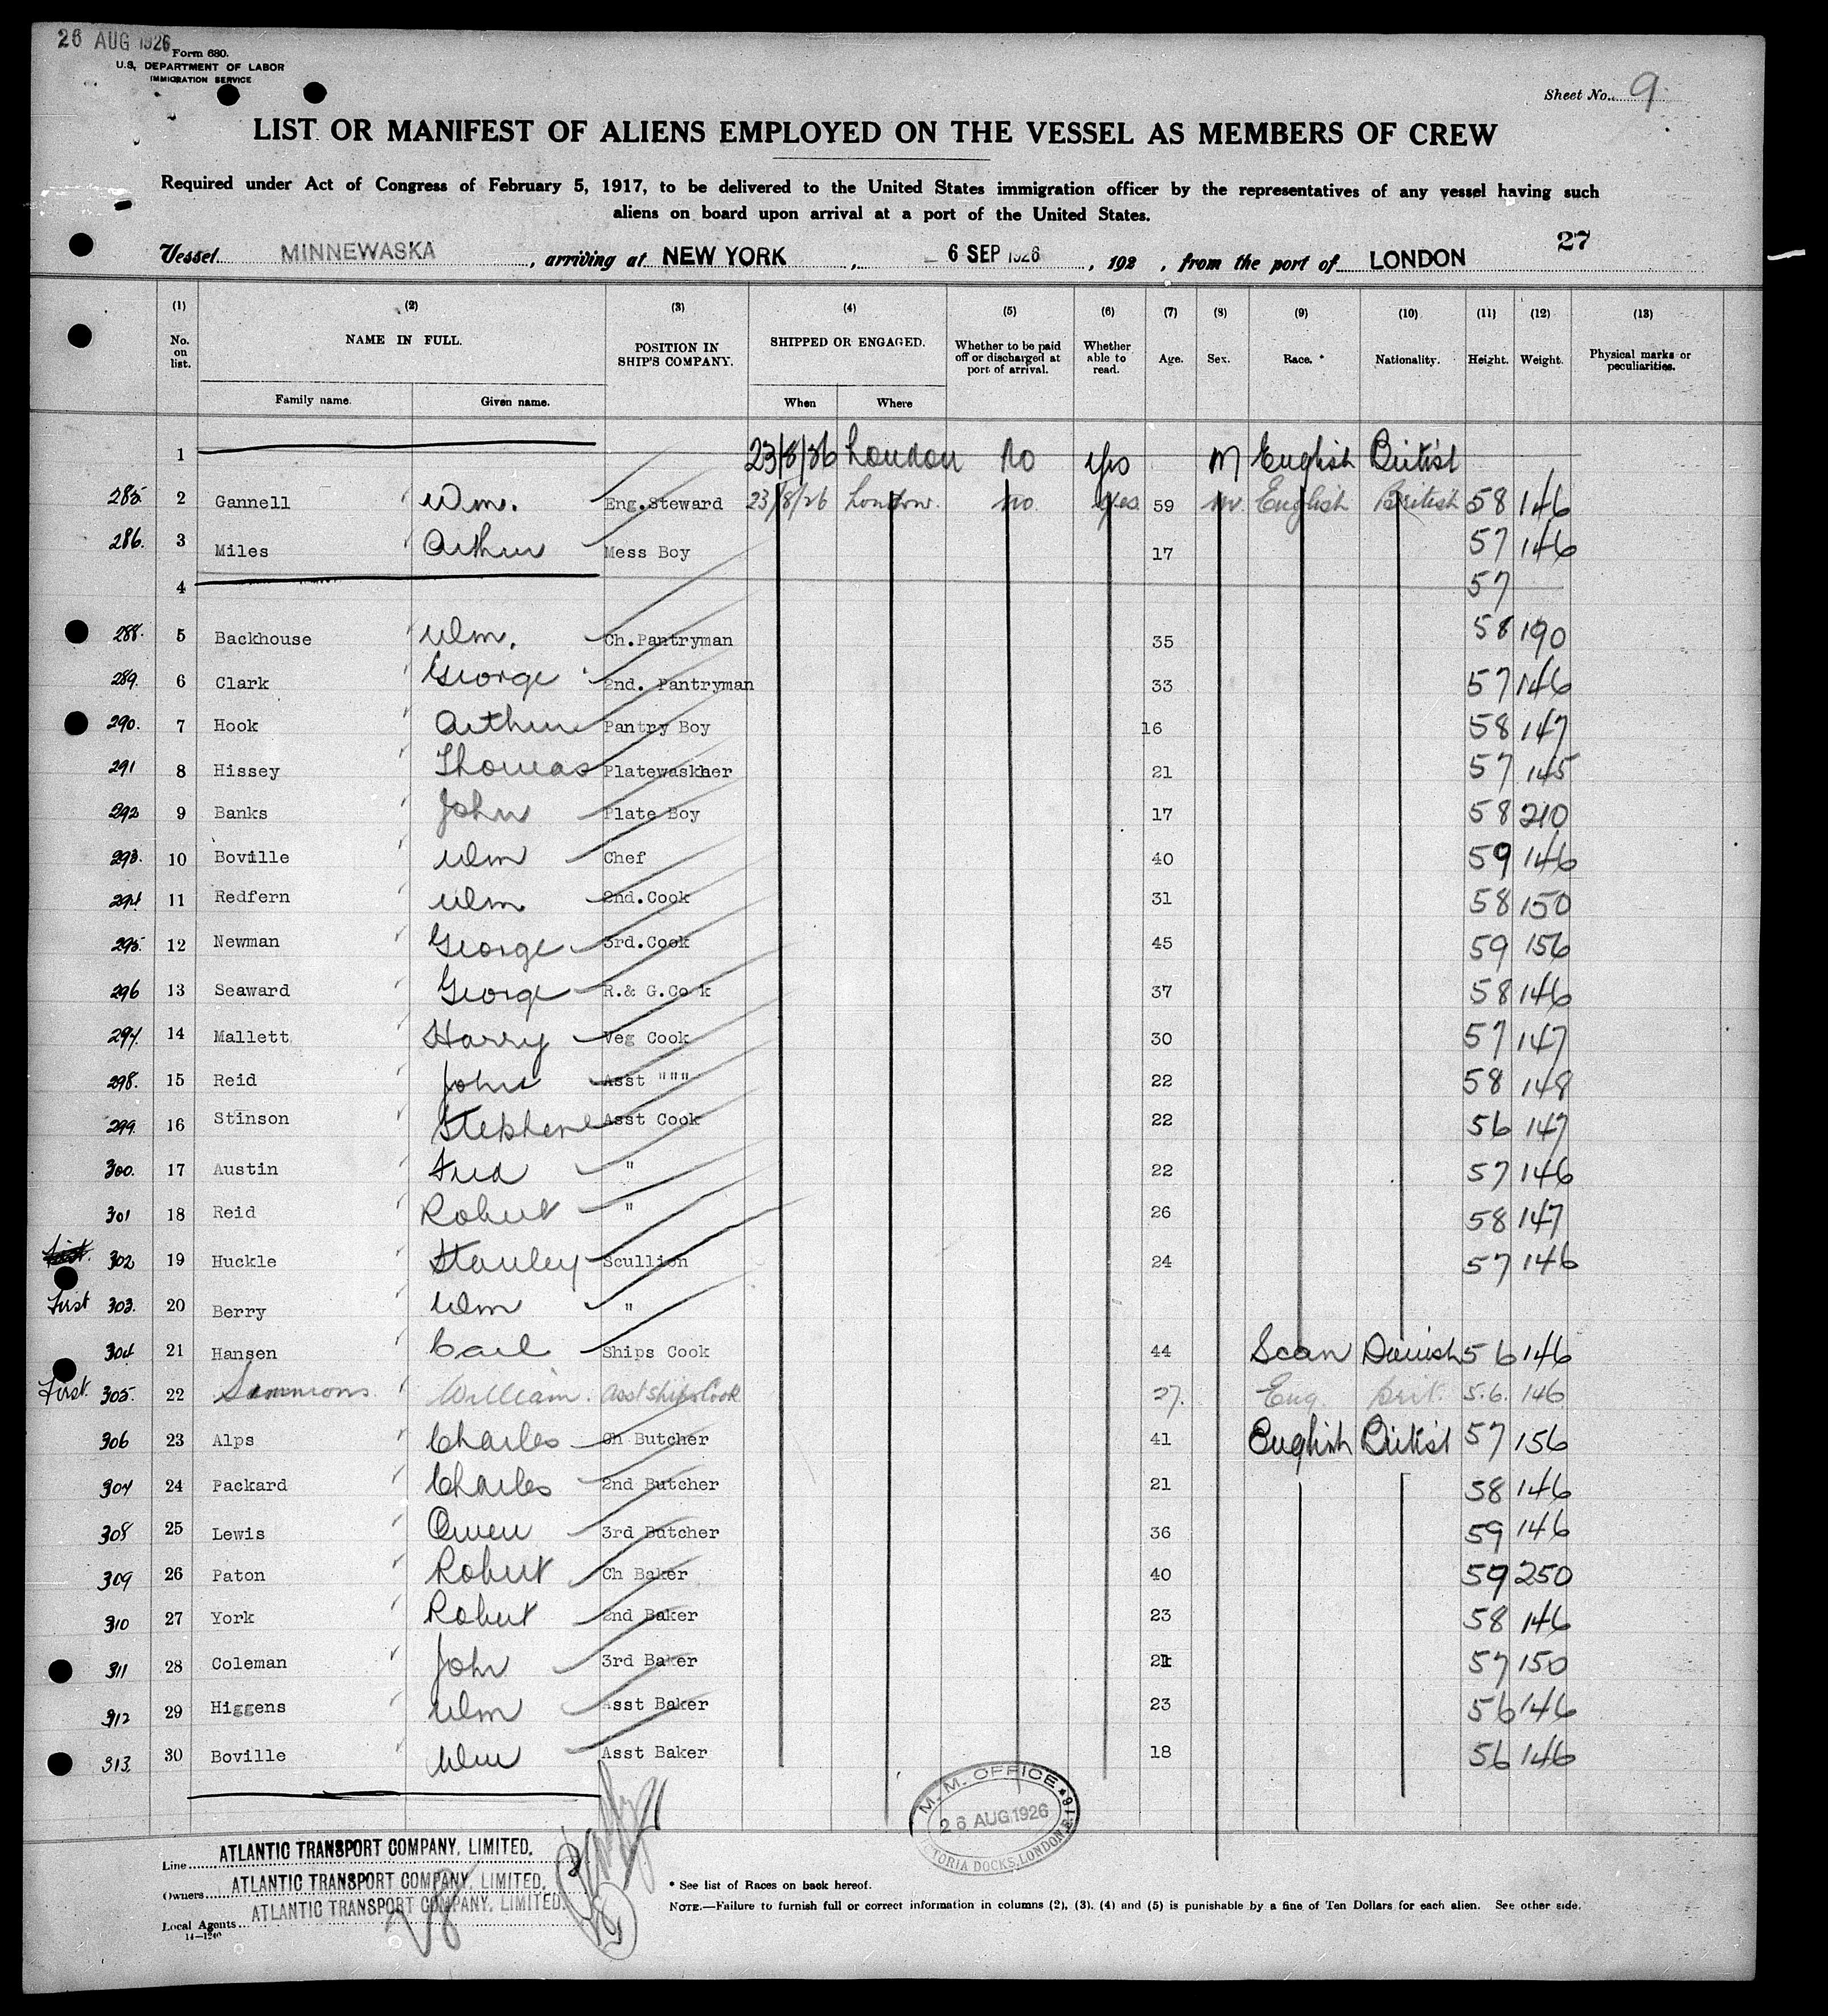 26 AUG 1926
Form 680.
U.S. DEPARTMENT OF LABOR
IMMIGRATION SERVICE
Sheet No. 9
LIST OR MANIFEST OF ALIENS EMPLOYED ON THE VESSEL AS MEMBERS OF CREW
Required under Act of Congress of February 5, 1917, to be delivered to the United States immigration officer by the representatives of any vessel having such
aliens on board upon arrival at a port of the United States.
27
Vessel MINNEWASKA, arriving at NEW YORK, 6 SEP 1926, 192 , from the port of LONDON
(1) (2) (3) (4) (5) (6) (7) (8) (9) (10) (11) (12) (13)
No. on list. NAME IN FULL. POSITION IN SHIP'S COMPANY. SHIPPED OR ENGAGED. Whether to be paid off or discharged at port of arrival. Whether able to read. Age. Sex. Race. * Nationality. Height. Weight. Physical marks or peculiarities.
Family name. Given name. When Where
1 23/8/26 London No yes M English British
285 2 Gannell Wm. Eng.Steward 23/8/26 London. no. yes 59 m. English British 58 146
286. 3 Miles Arthur Mess Boy 17 57 146
4 57
288. 5 Backhouse Wm. Ch.Pantryman 35 58 190
289. 6 Clark George 2nd. Pantryman 33 57 146
290. 7 Hook Arthur Pantry Boy 16 58 147
291 8 Hissey Thomas Platewashher 21 57 145
292 9 Banks John Plate Boy 17 58 210
293. 10 Boville Wm Chef 40 59 146
294 11 Redfern Wm 2nd.Cook 31 58 150
295. 12 Newman George 3rd.Cook 45 59 156
296 13 Seaward George R.& G.Cook 37 58 146
297. 14 Mallett Harry Veg Cook 30 57 147
298. 15 Reid John Asst """ 22 58 148
299. 16 Stinson Stephen Asst Cook 22 56 147
300. 17 Austin Fred " 22 57 146
301 18 Reid Robert " 26 58 147
302 19 Huckle Stanley Scullion 24 57 146
First 303. 20 Berry Wm "
304 21 Hansen Carl Ships Cook 44 Scan Danish 56 146
First. 305. 22 Simmons William. Asst Ships Cook 27. Eng. Brit. 5.6. 146
306 23 Alps Charles Ch Butcher 41 English British 57 156
307 24 Packard Charles 2nd Butcher 21 58 146
308 25 Lewis Owen 3rd Butcher 36 59 146
309 26 Paton Robert Ch Baker 40 59 250
310 27 York Robert 2nd Baker 23 58 146
311 28 Coleman John 3rd Baker 21 57 150
312 29 Higgens Wm Asst Baker 23 56 146
313. 30 Boville Wm Asst Baker 18 56 146
M. M. OFFICE
26 AUG 1926
TORIA DOCKS, LONDON E.16
Line ATLANTIC TRANSPORT COMPANY, LIMITED.
Owners ATLANTIC TRANSPORT COMPANY, LIMITED.
Local Agents ATLANTIC TRANSPORT COMPANY, LIMITED.
14—1240
28
* See list of Races on back hereof.
NOTE.—Failure to furnish full or correct information in columns (2), (3), (4) and (5) is punishable by a fine of Ten Dollars for each alien. See other side.